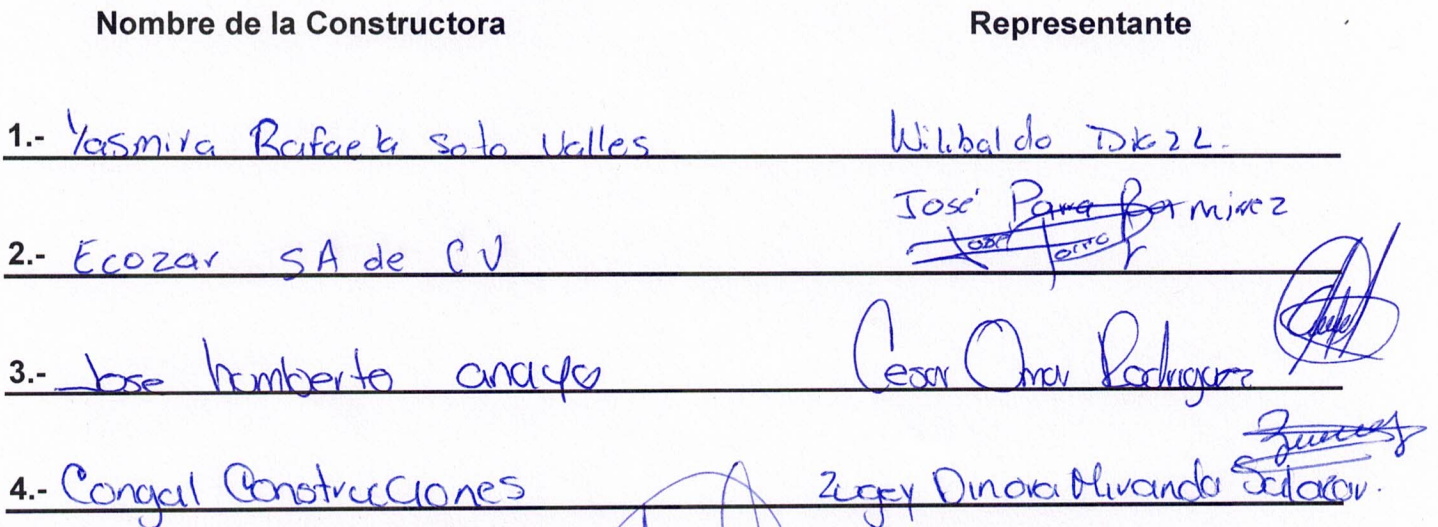 Nombre de la Constructora Representante
1.- Yasmira Rafaela Soto Valles Wilibaldo Diaz L.
José Parra
2.- Ecozar SA de CV
3.- Jose humberto anaya Cesar Omar Rodriguez
4.- Congal Construcciones Zugey Dinora Miranda Salazar.